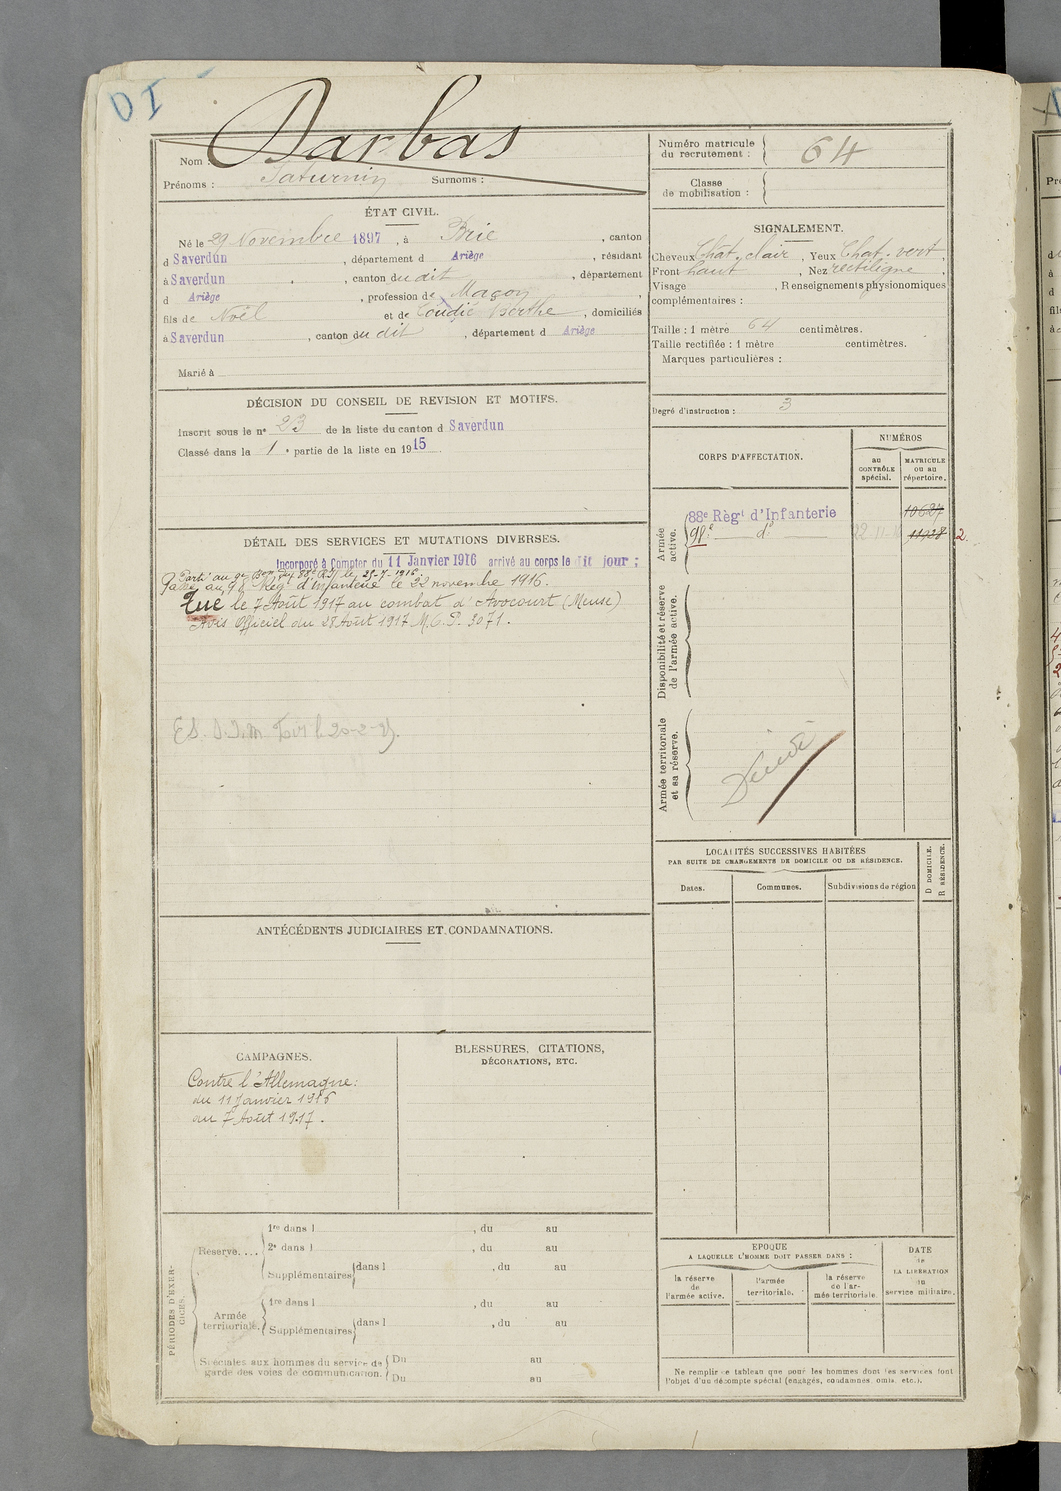 DI
Nom : Darbas
Prénoms : Saturnin Surnoms :
Numéro matricule
du recrutement : 64
Classe
de mobilisation :
ÉTAT CIVIL.
Né le 29 Novembre 1897, à Brie, canton
d Saverdun, département d Ariège, résidant
à Saverdun, canton du dit, département
d Ariège, profession de Maçon,
fils de Noël et de Berthe, domiciliés
à Saverdun, canton du dit, département d Ariège
Marié à
SIGNALEMENT.
Cheveux Chât. clair, Yeux Chat. vert,
Front haut, Nez rectiligne,
Visage , Renseignements physionomiques
complémentaires :
Taille : 1 mètre 64 centimètres.
Taille rectifiée : 1 mètre centimètres.
Marques particulières :
Degré d'instruction : 3
DÉCISION DU CONSEIL DE REVISION ET MOTIFS.
Inscrit sous le nº 23 de la liste du canton d Saverdun
Classé dans la 1 e partie de la liste en 1915
CORPS D'AFFECTATION.
NUMÉROS
au
CONTRÔLE
spécial.
MATRICULE
ou au
répertoire.
Armée
active.
88e Régt d'Infanterie 10627
9 do 22-11-16 11928 2.
Disponibilité et réserve
de l'armée active.
Armée territoriale
et sa réserve.
DÉTAIL DES SERVICES ET MUTATIONS DIVERSES.
Incorporé à Compter du 11 Janvier 1916 arrivé au corps le dit jour ;
Parti au 9e Bon du 88e R.I. le 25-7-1916.
Passé au 9 Régt d'Infanterie le 22 novembre 1916.
Tué le 7 Août 1917 au combat d'Avocourt (Meuse)
Avis Officiel du 28 Août 1917 M.C.P. 3071.
LOCALITÉS SUCCESSIVES HABITÉES
PAR SUITE DE CHANGEMENTS DE DOMICILE OU DE RÉSIDENCE.
Dates.
Communes.
Subdivisions de région
D DOMICILE.
R RÉSIDENCE.
ANTÉCÉDENTS JUDICIAIRES ET CONDAMNATIONS.
CAMPAGNES.
Contre l'Allemagne :
du 11 Janvier 1916
au 7 Août 1917.
BLESSURES, CITATIONS,
DÉCORATIONS, ETC.
PÉRIODES D'EXER-
CICES.
Réserve....
1re dans l , du au
2e dans l , du au
Supplémentaires dans l , du au
Armée
territoriale.
1re dans l , du au
Supplémentaires dans l , du au
Spéciales aux hommes du service de
garde des voies de communication.
Du au
Du au
EPOQUE
A LAQUELLE L'HOMME DOIT PASSER DANS :
la réserve
de
l'armée active.
l'armée
territoriale.
la réserve
de l'ar-
mée territoriale.
DATE
de
LA LIBÉRATION
du
service militaire.
Ne remplir ce tableau que pour les hommes dont les services font
l'objet d'un décompte spécial (engagés, condamnés, omis, etc.).